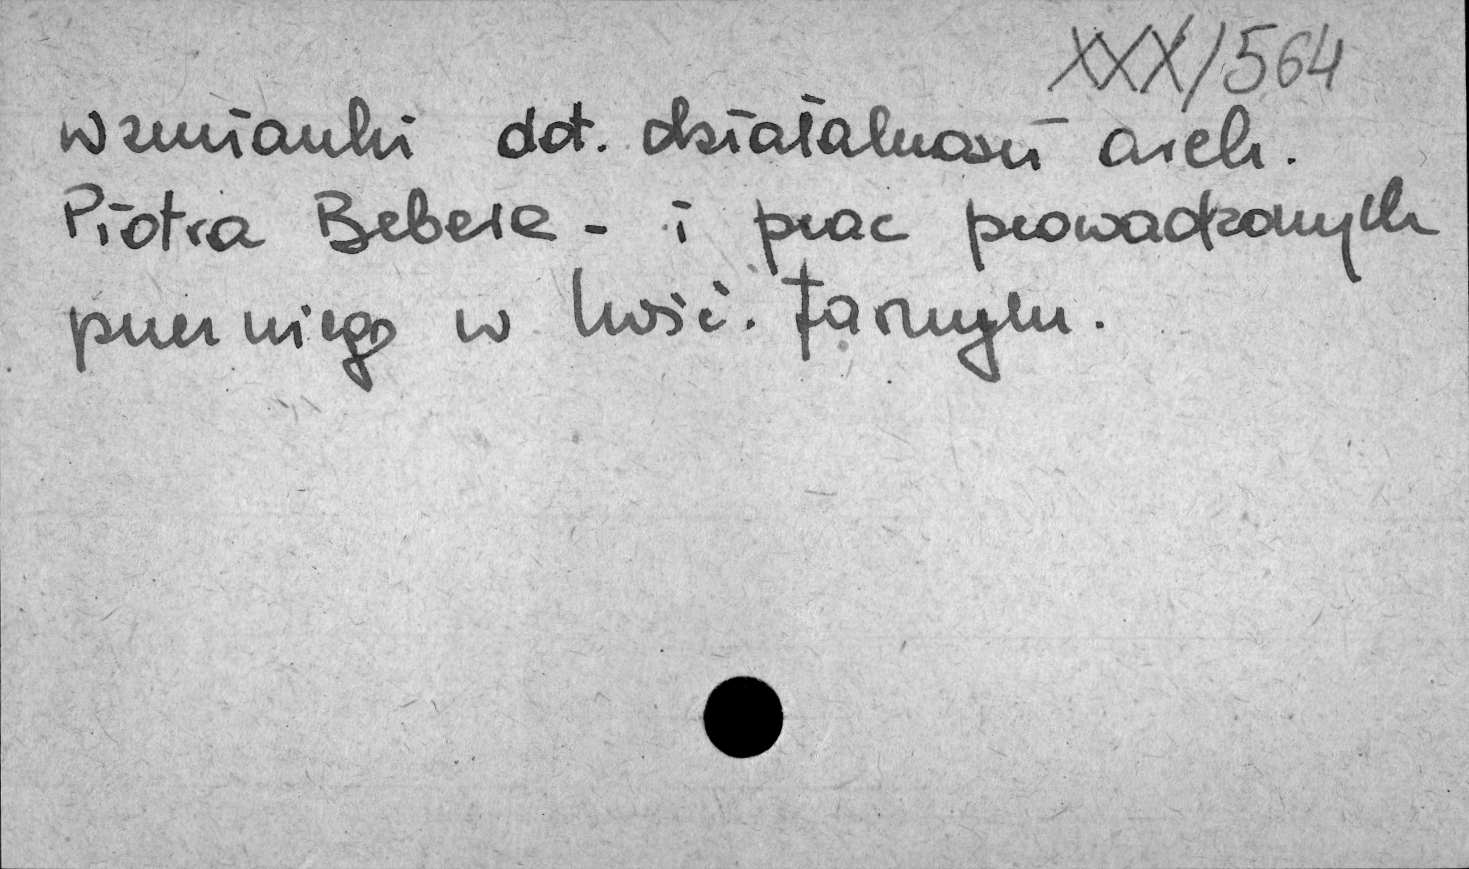 XXX/564
wzmianki dot. działalności arch.
Piotra Bebera - i prac prowadzonych
przez niego w kośc. farnym.